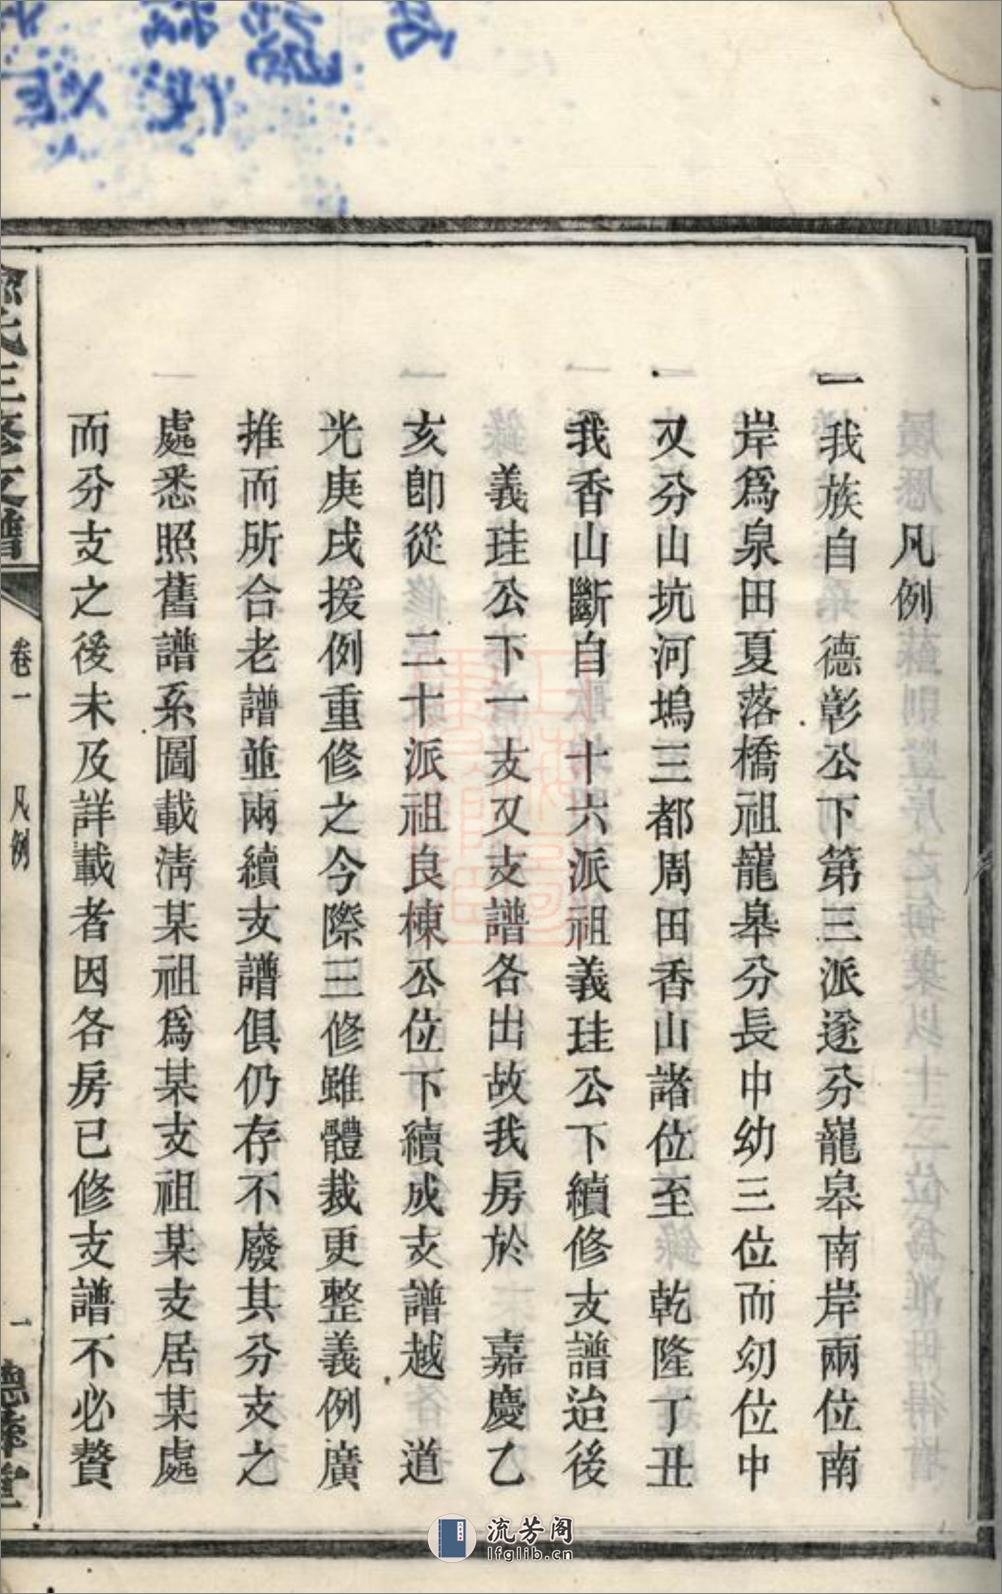 凡例
一我族自 德彰公下第三派遂分巃皋南岸兩位南
岸爲泉田夏落橋祖巃皋分長中幼三位而幼位中
又分山坑河塢三都周田香山諸位至 乾隆丁丑
我香山斷自 十六派祖義珪公下續修支譜迨後
義珪公下一支又支譜各出故我房於 嘉慶乙
亥卽從 二十派祖良棟公位下續成支譜越 道
光庚戌援例重修之今際三修雖體裁更整義例廣
推而所合老譜並兩續支譜俱仍存不廢其分支之
處悉照舊譜系圖載淸某祖爲某支祖某支居某處
而分支之後未及詳載者因各房已修支譜不必贅
氏三修支譜
卷一 凡例
一
流芳阁
lfglib.cn